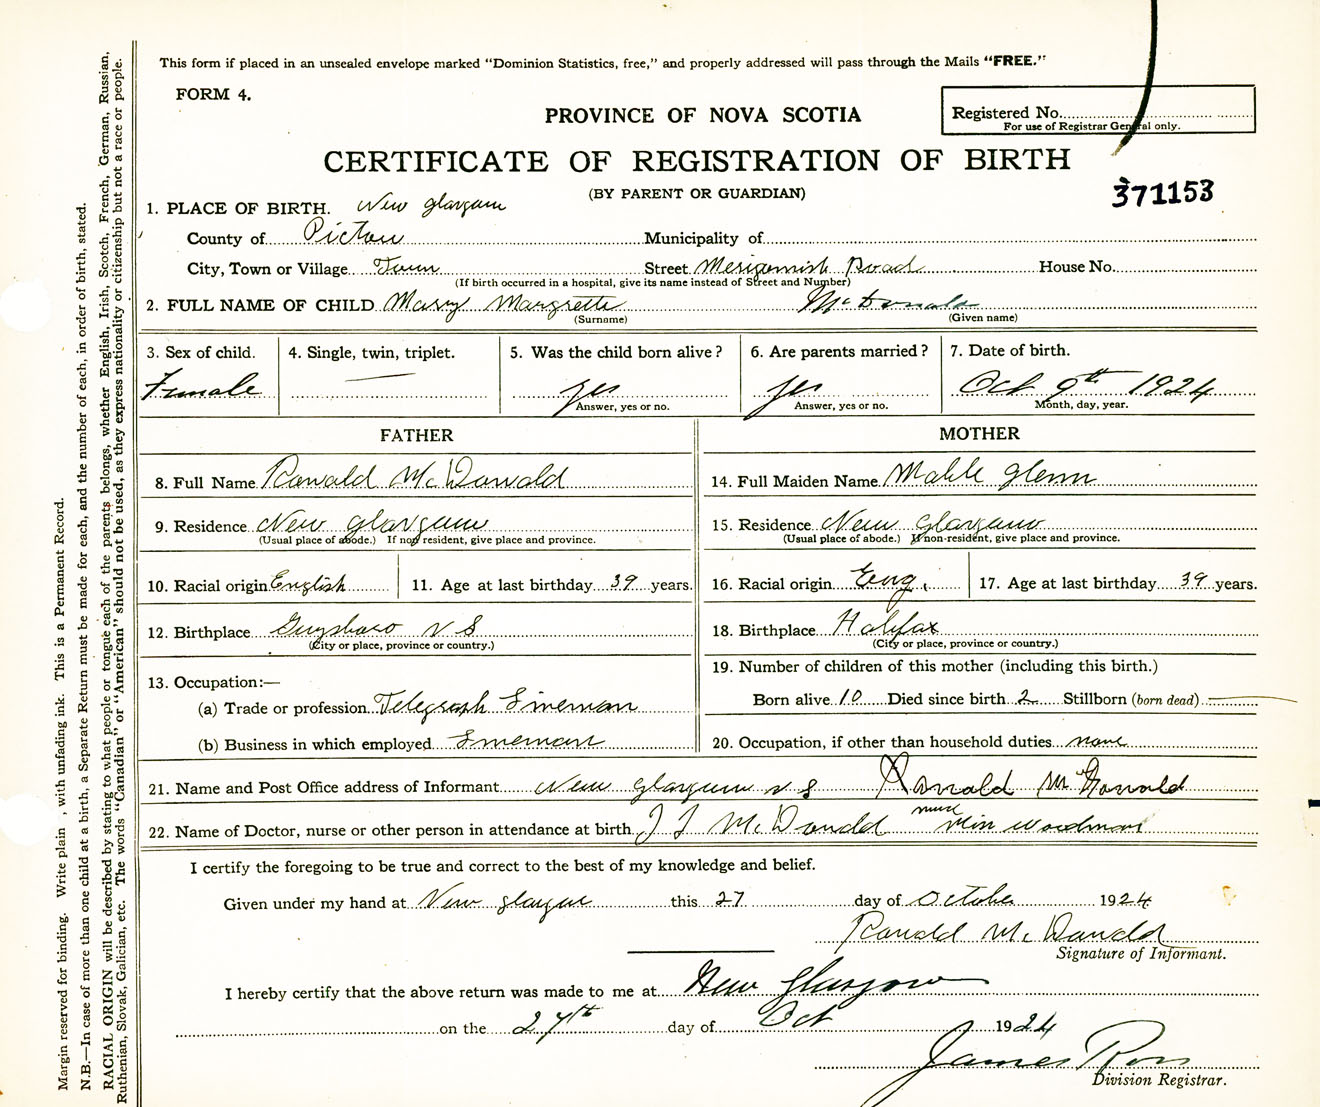 This form if placed in an unsealed envelope marked "Dominion Statistics, free," and properly addressed will pass through the Mails "FREE."
FORM 4.
PROVINCE OF NOVA SCOTIA
Registered No.
For use of Registrar General only.
CERTIFICATE OF REGISTRATION OF BIRTH
(BY PARENT OR GUARDIAN)
371153
1. PLACE OF BIRTH. New Glasgow
County of Pictou Municipality of
City, Town or Village Town Street Merigomish Road House No.
(If birth occurred in a hospital, give its name instead of Street and Number)
2. FULL NAME OF CHILD Mary Margrette McDonald
(Surname) (Given name)
3. Sex of child. 4. Single, twin, triplet. 5. Was the child born alive? 6. Are parents married? 7. Date of birth.
Female — yes yes Oct 9th 1924
Answer, yes or no. Answer, yes or no. Month, day, year.
FATHER MOTHER
8. Full Name Ronald McDonald 14. Full Maiden Name Glenn
9. Residence New Glasgow 15. Residence New Glasgow
(Usual place of abode.) If non resident, give place and province. (Usual place of abode.) If non-resident, give place and province.
10. Racial origin English 11. Age at last birthday 39 years. 16. Racial origin Eng. 17. Age at last birthday 39 years.
12. Birthplace Guysboro N S 18. Birthplace Halifax
(City or place, province or country.) (City or place, province or country.)
19. Number of children of this mother (including this birth.)
13. Occupation:—
(a) Trade or profession Telegraph Lineman Born alive 10 Died since birth 2 Stillborn (born dead)
(b) Business in which employed Lineman 20. Occupation, if other than household duties none
21. Name and Post Office address of Informant New Glasgow N S Ronald McDonald
22. Name of Doctor, nurse or other person in attendance at birth J J McDonald nurse Min Woodman
I certify the foregoing to be true and correct to the best of my knowledge and belief.
Given under my hand at New Glasgow this 27 day of October 1924
Ronald McDonald
Signature of Informant.
I hereby certify that the above return was made to me at New Glasgow
on the 27th day of Oct 1924
James Ross
Division Registrar.
Margin reserved for binding. Write plain , with unfading ink. This is a Permanent Record.
N.B.—In case of more than one child at a birth, a Separate Return must be made for each, and the number of each, in order of birth, stated.
RACIAL ORIGIN will be described by stating to what people or tongue each of the parents belongs, whether English, Irish, Scotch, French, German, Russian,
Ruthenian, Slovak, Galician, etc. The words "Canadian" or "American" should not be used, as they express nationality or citizenship but not a race or people.